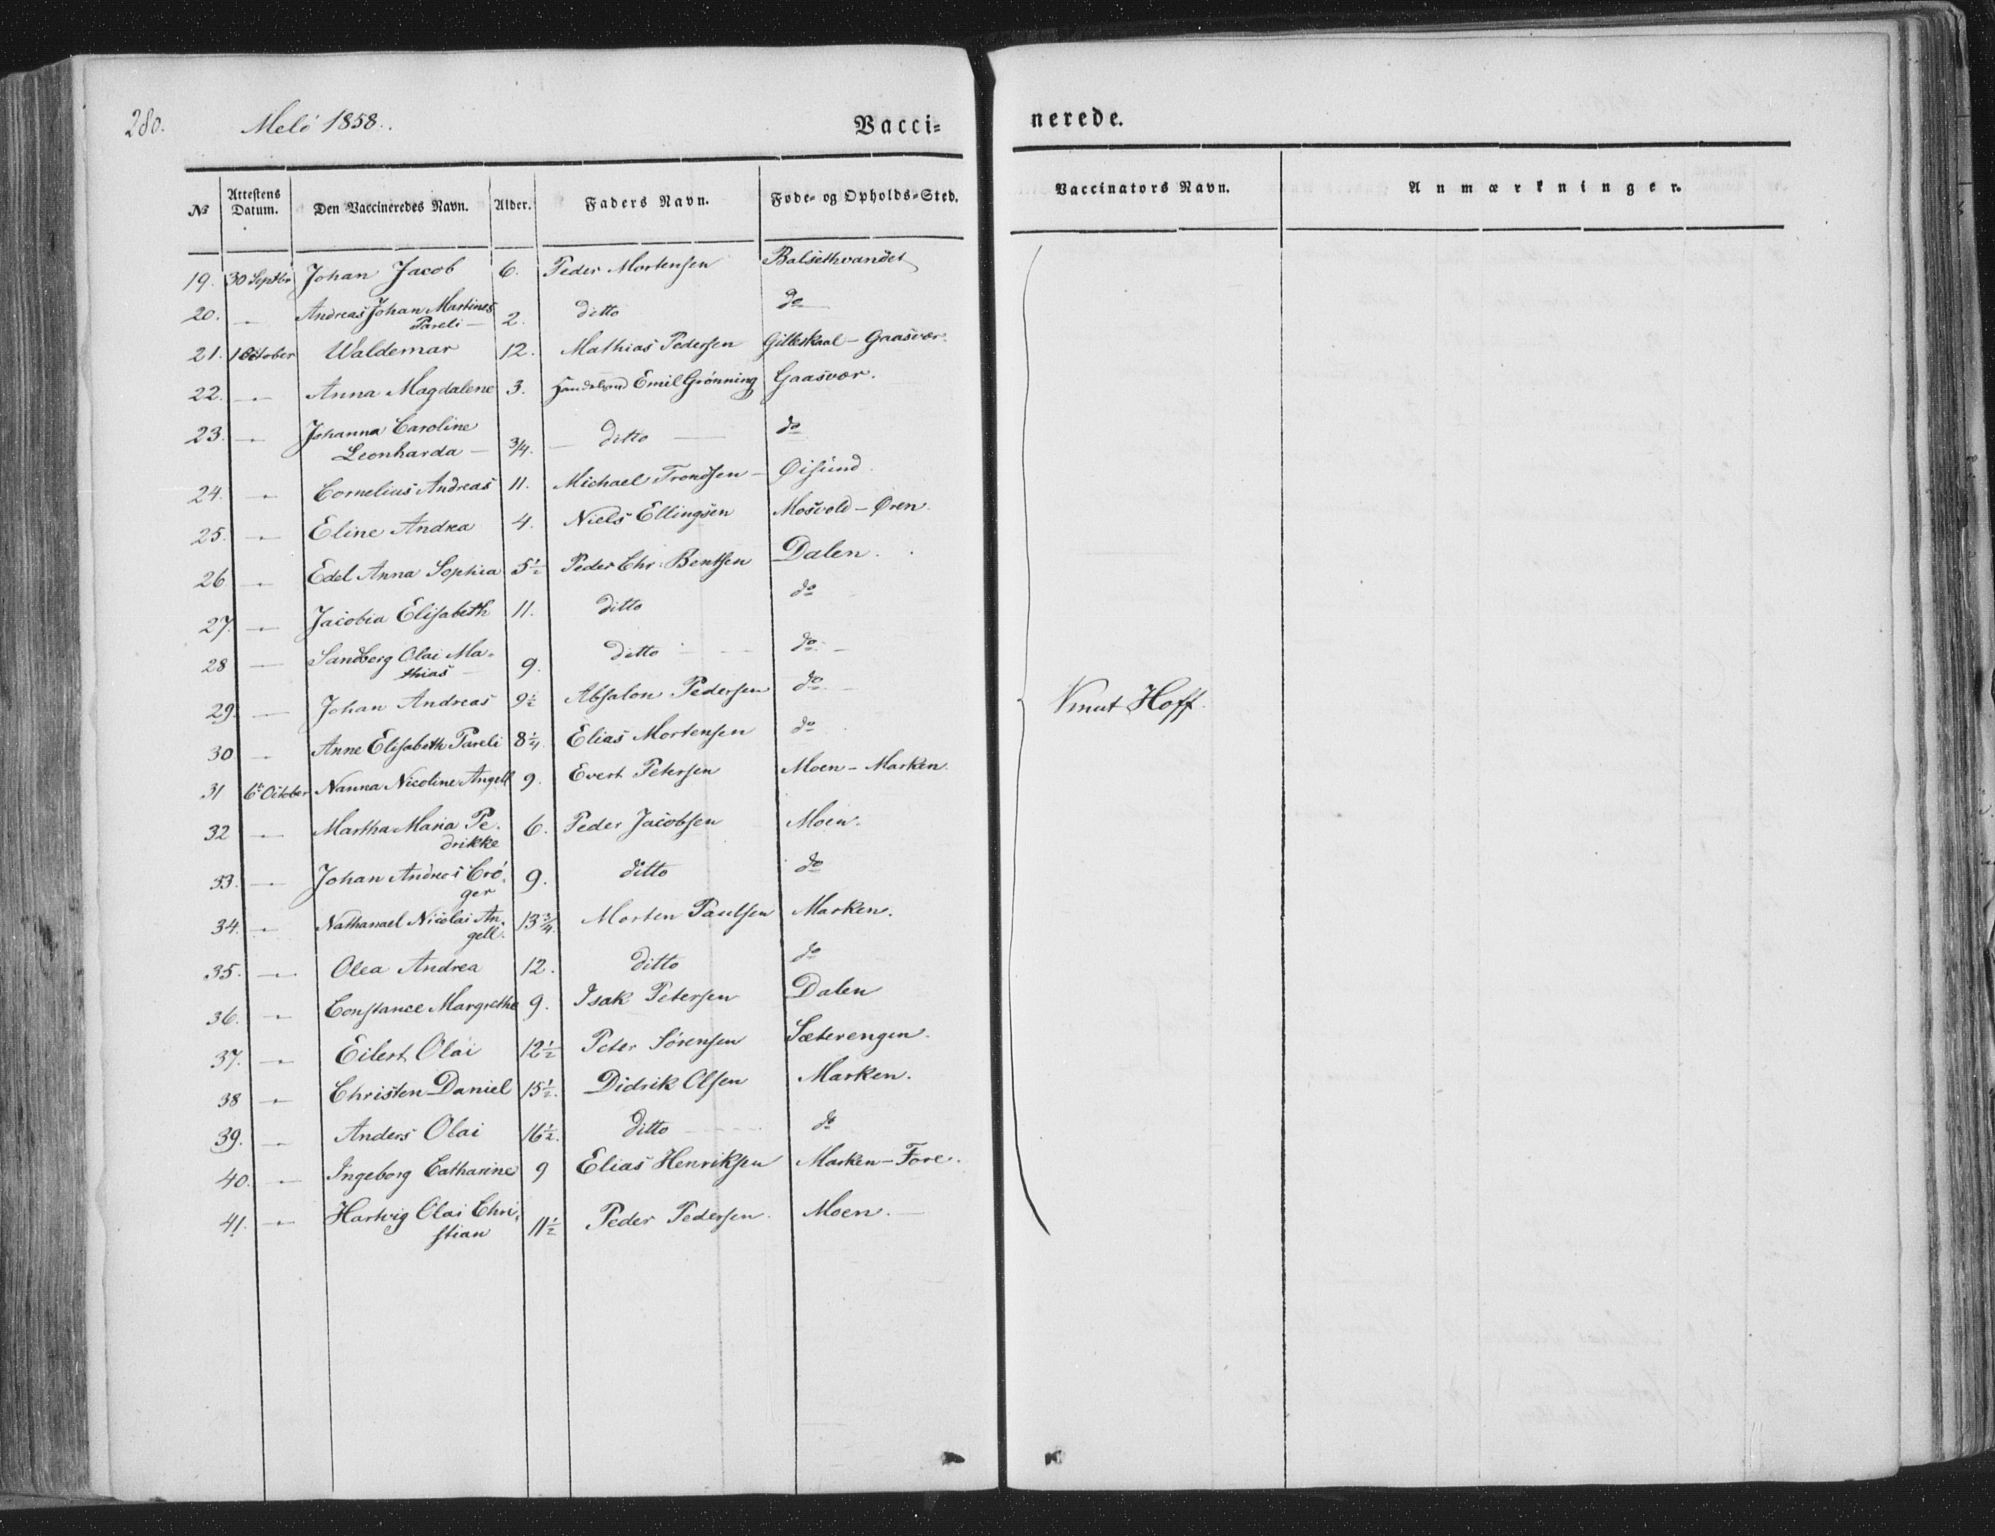 280. Melö 1858.
Vacci= nerede.
№ Attestens Datum. Den Vaccineredes Navn. Alder. Faders Navn. Føde- og Opholds-Sted. Vaccinators Navn. Anmærkninger.
19. 30 Septbr Johan Jacob 6. Peder Mortensen Balsethvandet
20. — Andreas Johan Martines
Pareli — 2. ditto do
21. 1 October Waldemar 12. Mathias Pedersen Gilleskaal - Gaasvær.
22. — Anna Magdalene 3. Handelsmd Emil Grønning Gaasvær.
23. — Johanna Caroline
Leonharda — 3/4. — ditto — do
24. — Cornelius Andreas 11. Michael Trondsen - Øisund.
25. — Eline Andrea 4. Niels Ellingsen Mosvold - Øren.
26 — Edel Anna Sophia 5½ Peder Chr. Bentsen Dalen.
27. — Jacobia Elisabeth 11. ditto do
28 — Sandberg Olai Ma-
thias — 9. ditto do
29. — Johan Andreas 9½ Absalon Pedersen do
Knut Hoff.
30 — Anne Elisabeth Pareli 8¼. Elias Mortensen do
31 6te October Nanna Nicoline Angell 9. Evert Petersen Moen - Marken.
32 — Martha Maria Pe-
drikke 6. Peder Jacobsen Moen.
33. — Johan Andreas Crö-
ger 9. ditto do
34. — Nathanael Nicolai An-
gell. 13¾. Morten Paulsen Marken.
35. — Olea Andrea 12. ditto do
36. — Constance Margrethe 9. Isak Petersen Dalen
37. — Eilert Olai 12½ Peter Sörensen Sæterengen.
38 — Christen Daniel 15½. Didrik Olsen Marken.
39. — Anders Olai 16½. ditto do
40. — Ingeborg Catharine 9 Elias Henriksen Marken - Fore.
41. — Hartvig Olai Chri-
stian 11½ Peder Pedersen. Moen. —